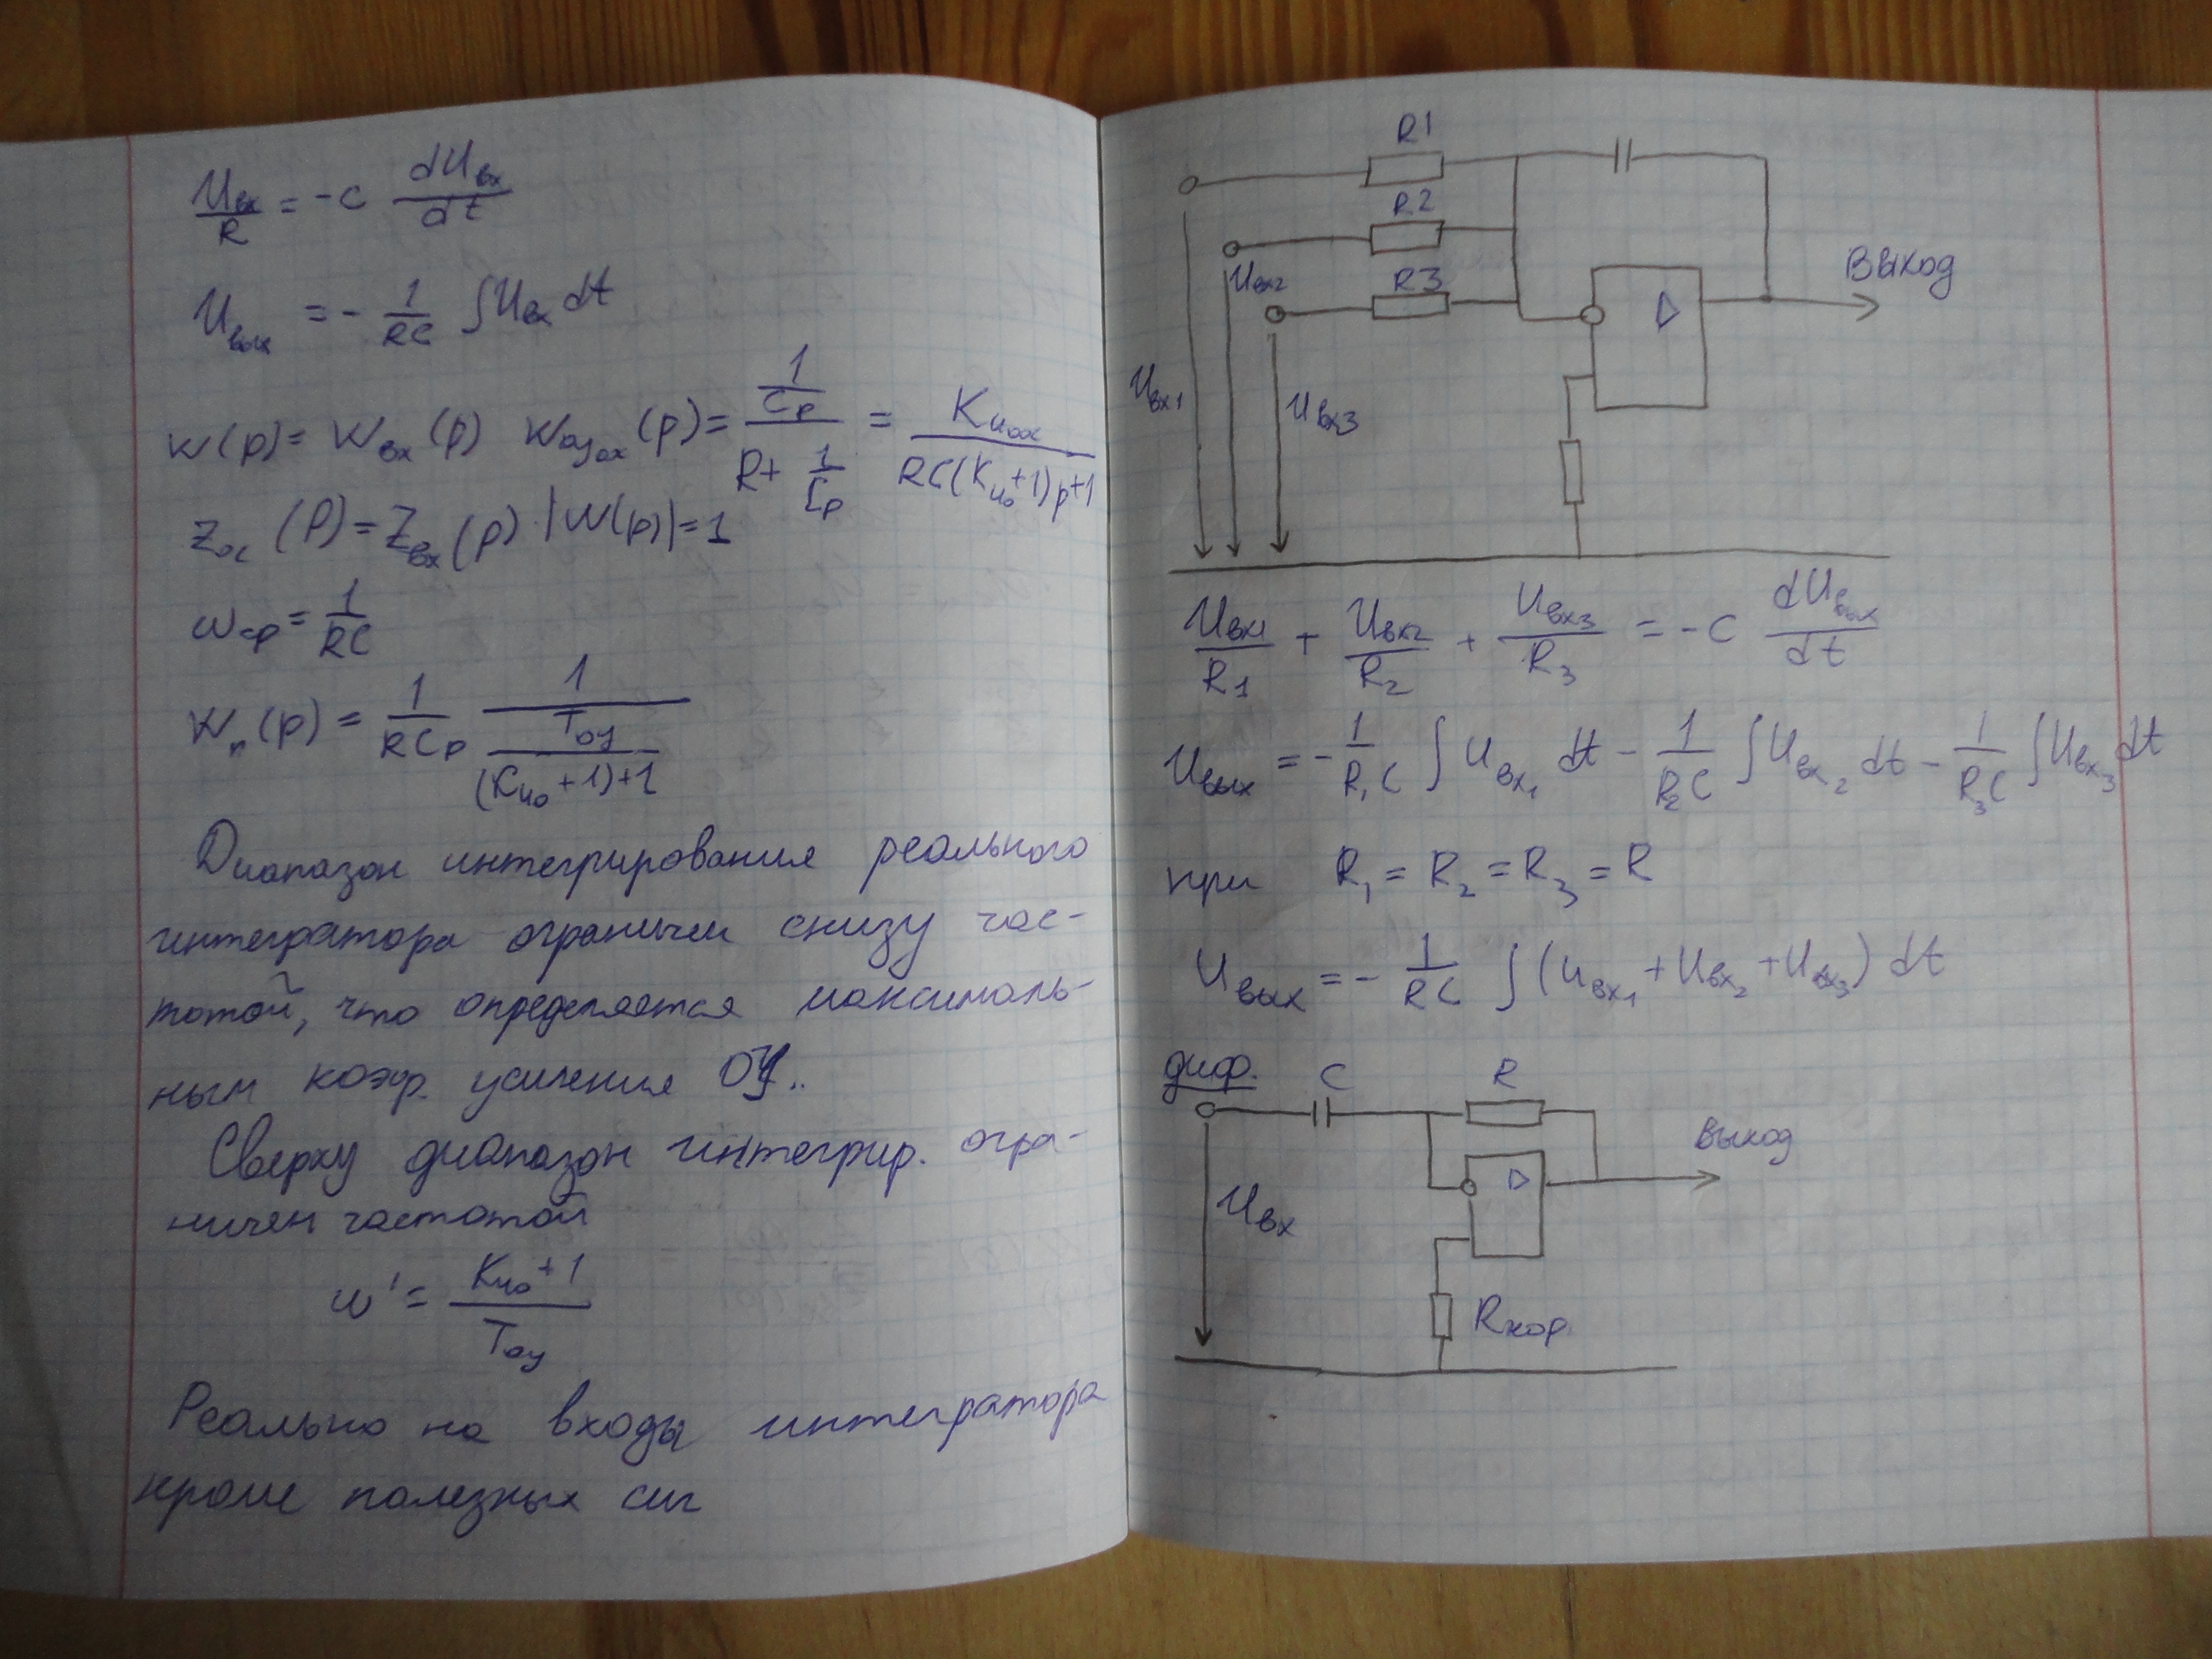 Uвх/R = -C dUвх/dt
Uвых = - 1/RC ∫Uвх dt
W(p) = Wвх(p) Wоуох(p) = (1/Cp)/(R + 1/Cp) = Kиоос/(RC(Kио+1)p+1)
Zос(P) = Zвх(p) · |W(p)| = 1
ωср = 1/RC
Wп(p) = 1/RCp 1/(Tоу/(Kио+1)+1)
Диапазон интегрирования реального
интегратора ограничен снизу час-
тотой, что определяется максималь-
ным коэф. усиления ОУ..
Сверху диапазон интегрир. огра-
ничен частотой
ω' = (Kио+1)/Tоу
Реально на входы интегратора
кроме полезных сиг
R1
R2
Uвх2
R3
Выход
Uвх1
Uвх3
Uвх1/R1 + Uвх2/R2 + Uвх3/R3 = -C dUвых/dt
Uвых = - 1/R1C ∫Uвх1 dt - 1/R2C ∫Uвх2 dt - 1/R3C ∫Uвх3 dt
при R1 = R2 = R3 = R
Uвых = - 1/RC ∫(Uвх1 + Uвх2 + Uвх3) dt
диф. C R
Выход
Uвх
Rкор.